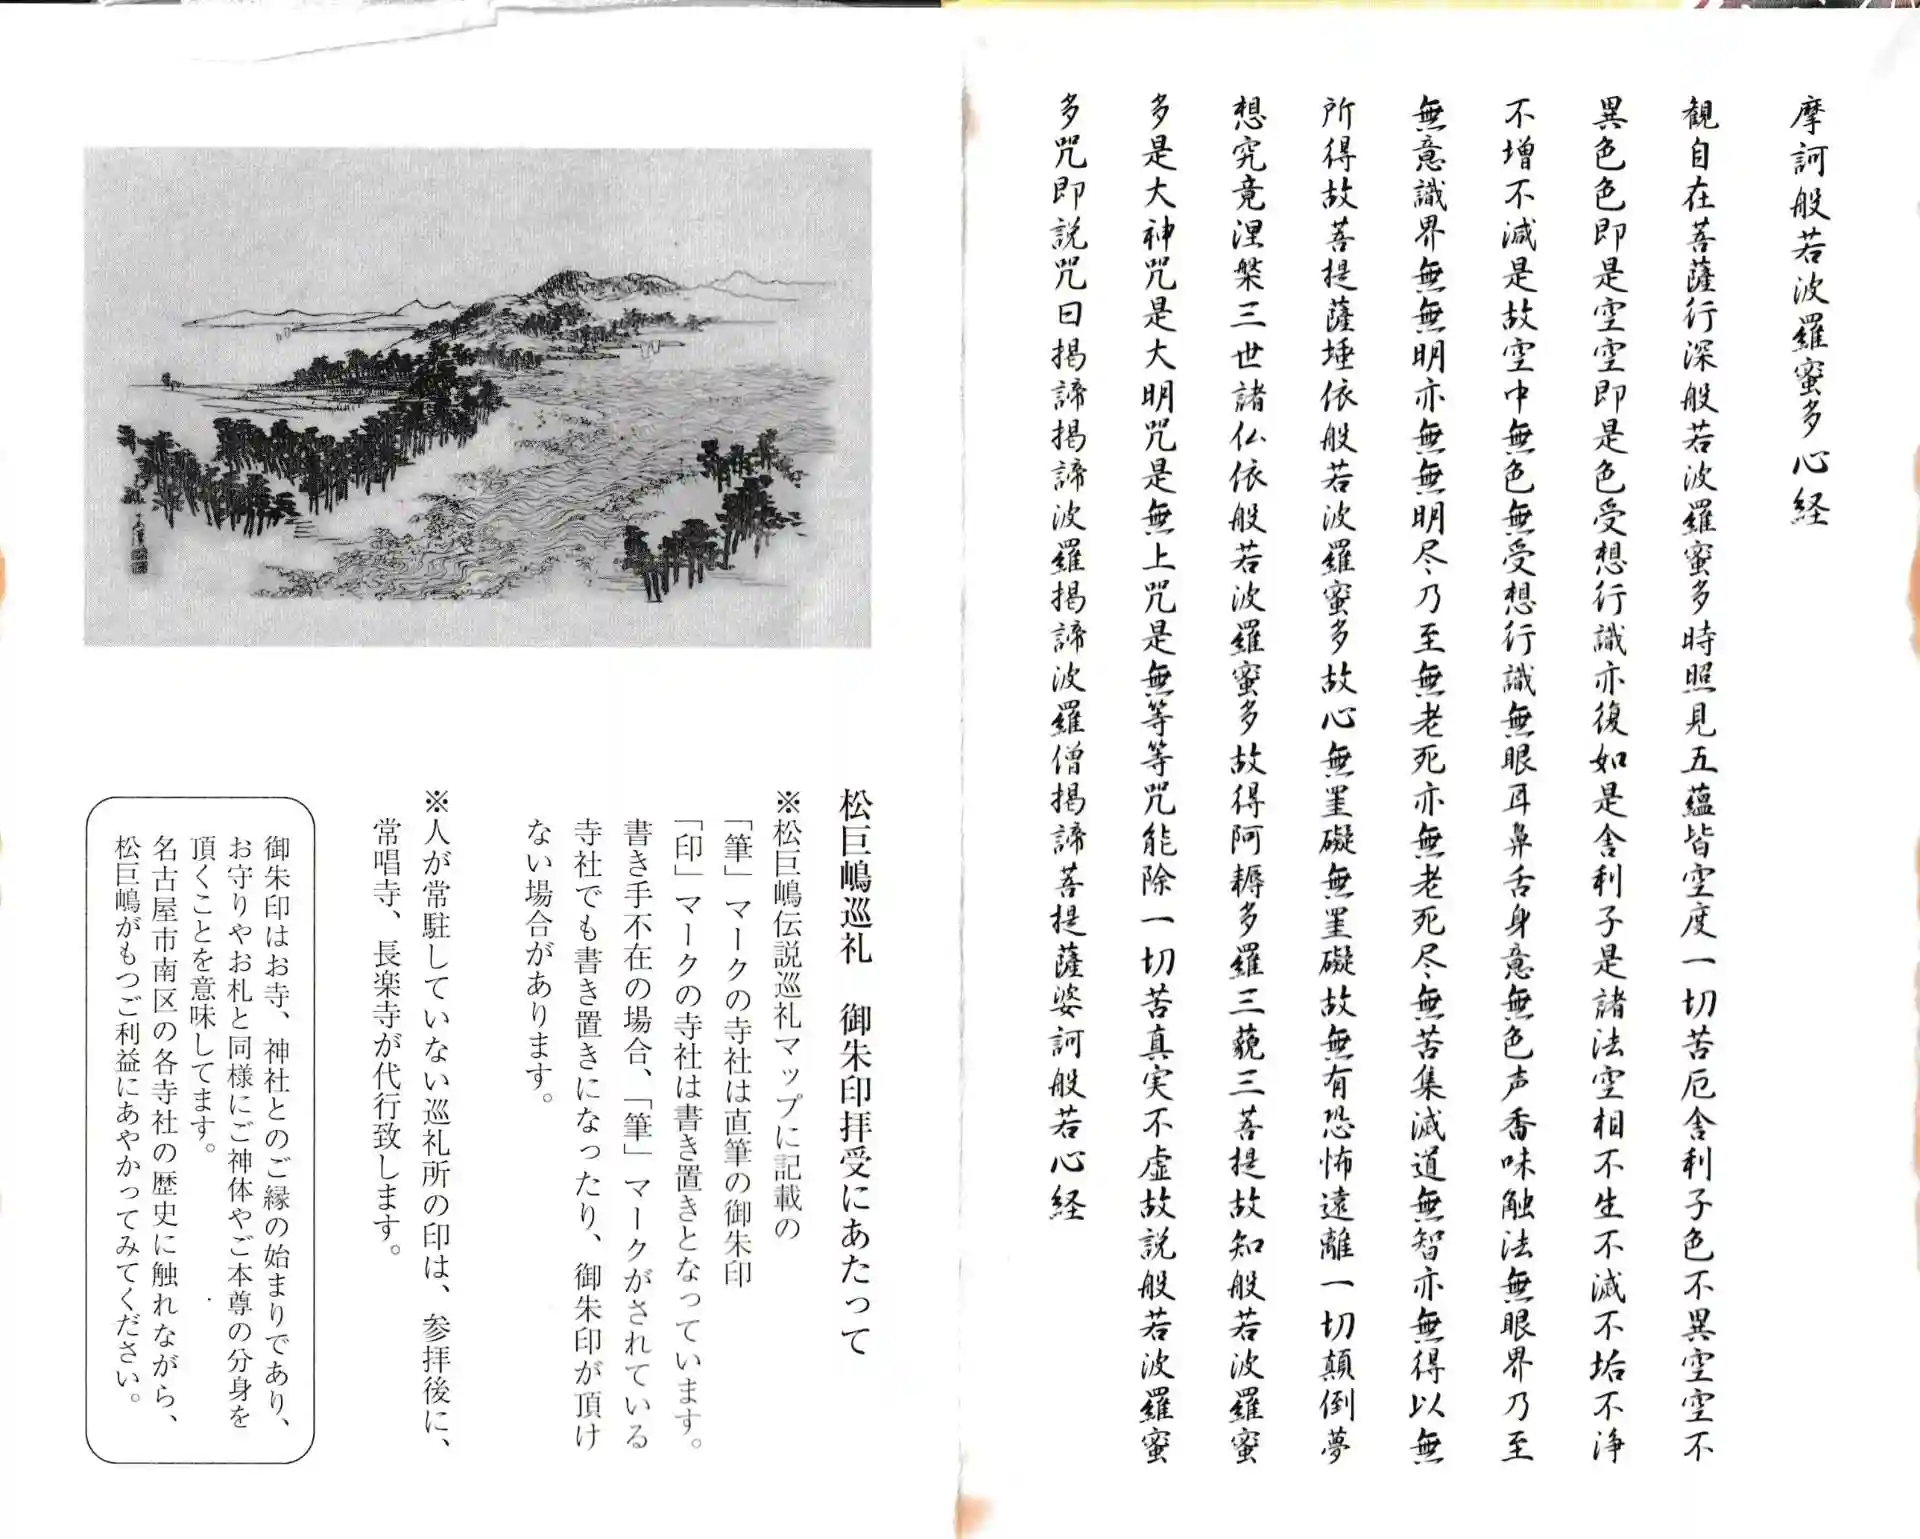 摩訶般若波羅蜜多心経
観自在菩薩行深般若波羅蜜多時照見五蘊皆空度一切苦厄舎利子色不異空空不
異色色即是空空即是色受想行識亦復如是舎利子是諸法空相不生不滅不垢不浄
不増不減是故空中無色無受想行識無眼耳鼻舌身意無色声香味触法無眼界乃至
無意識界無無明亦無無明尽乃至無老死亦無老死尽無苦集滅道無智亦無得以無
所得故菩提薩埵依般若波羅蜜多故心無罣礙無罣礙故無有恐怖遠離一切顛倒夢
想究竟涅槃三世諸仏依般若波羅蜜多故得阿耨多羅三藐三菩提故知般若波羅蜜
多是大神咒是大明咒是無上咒是無等等咒能除一切苦真実不虚故説般若波羅蜜
多咒即説咒曰掲諦掲諦波羅掲諦波羅僧掲諦菩提薩婆訶般若心経
松巨嶋巡礼　御朱印拝受にあたって
※松巨嶋伝説巡礼マップに記載の
「筆」マークの寺社は直筆の御朱印
「印」マークの寺社は書き置きとなっています。
書き手不在の場合、「筆」マークがされている
寺社でも書き置きになったり、御朱印が頂け
ない場合があります。
※人が常駐していない巡礼所の印は、参拝後に、
常唱寺、長楽寺が代行致します。
御朱印はお寺、神社とのご縁の始まりであり、
お守りやお札と同様にご神体やご本尊の分身を
頂くことを意味してます。
名古屋市南区の各寺社の歴史に触れながら、
松巨嶋がもつご利益にあやかってみてください。